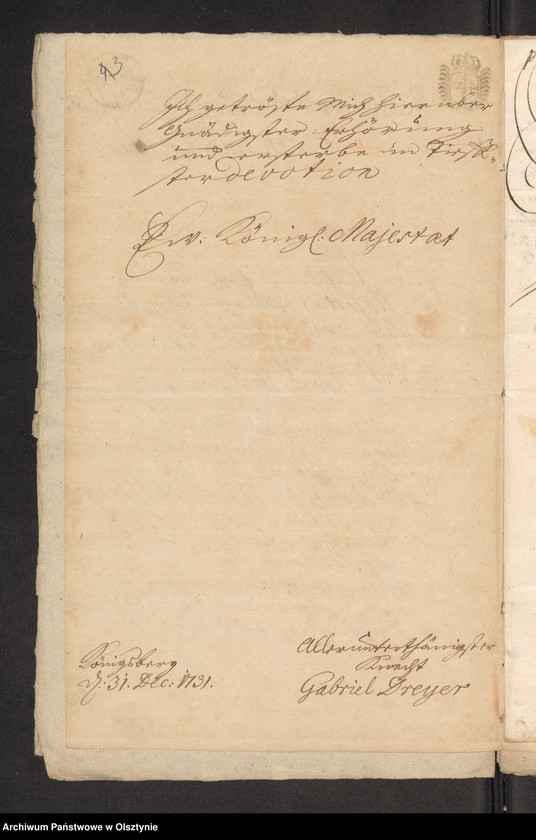 3
Ich getröste mich hierüber
Gnädigster Erhörung
und ersterbe in Tieff-
ster devotion
Ew: Königl: Majestæt
Allerunterthänigster
Knecht
Gabriel Dreyer
Königsberg
d: 31. Dec: 1731.
Archiwum Państwowe w Olsztynie